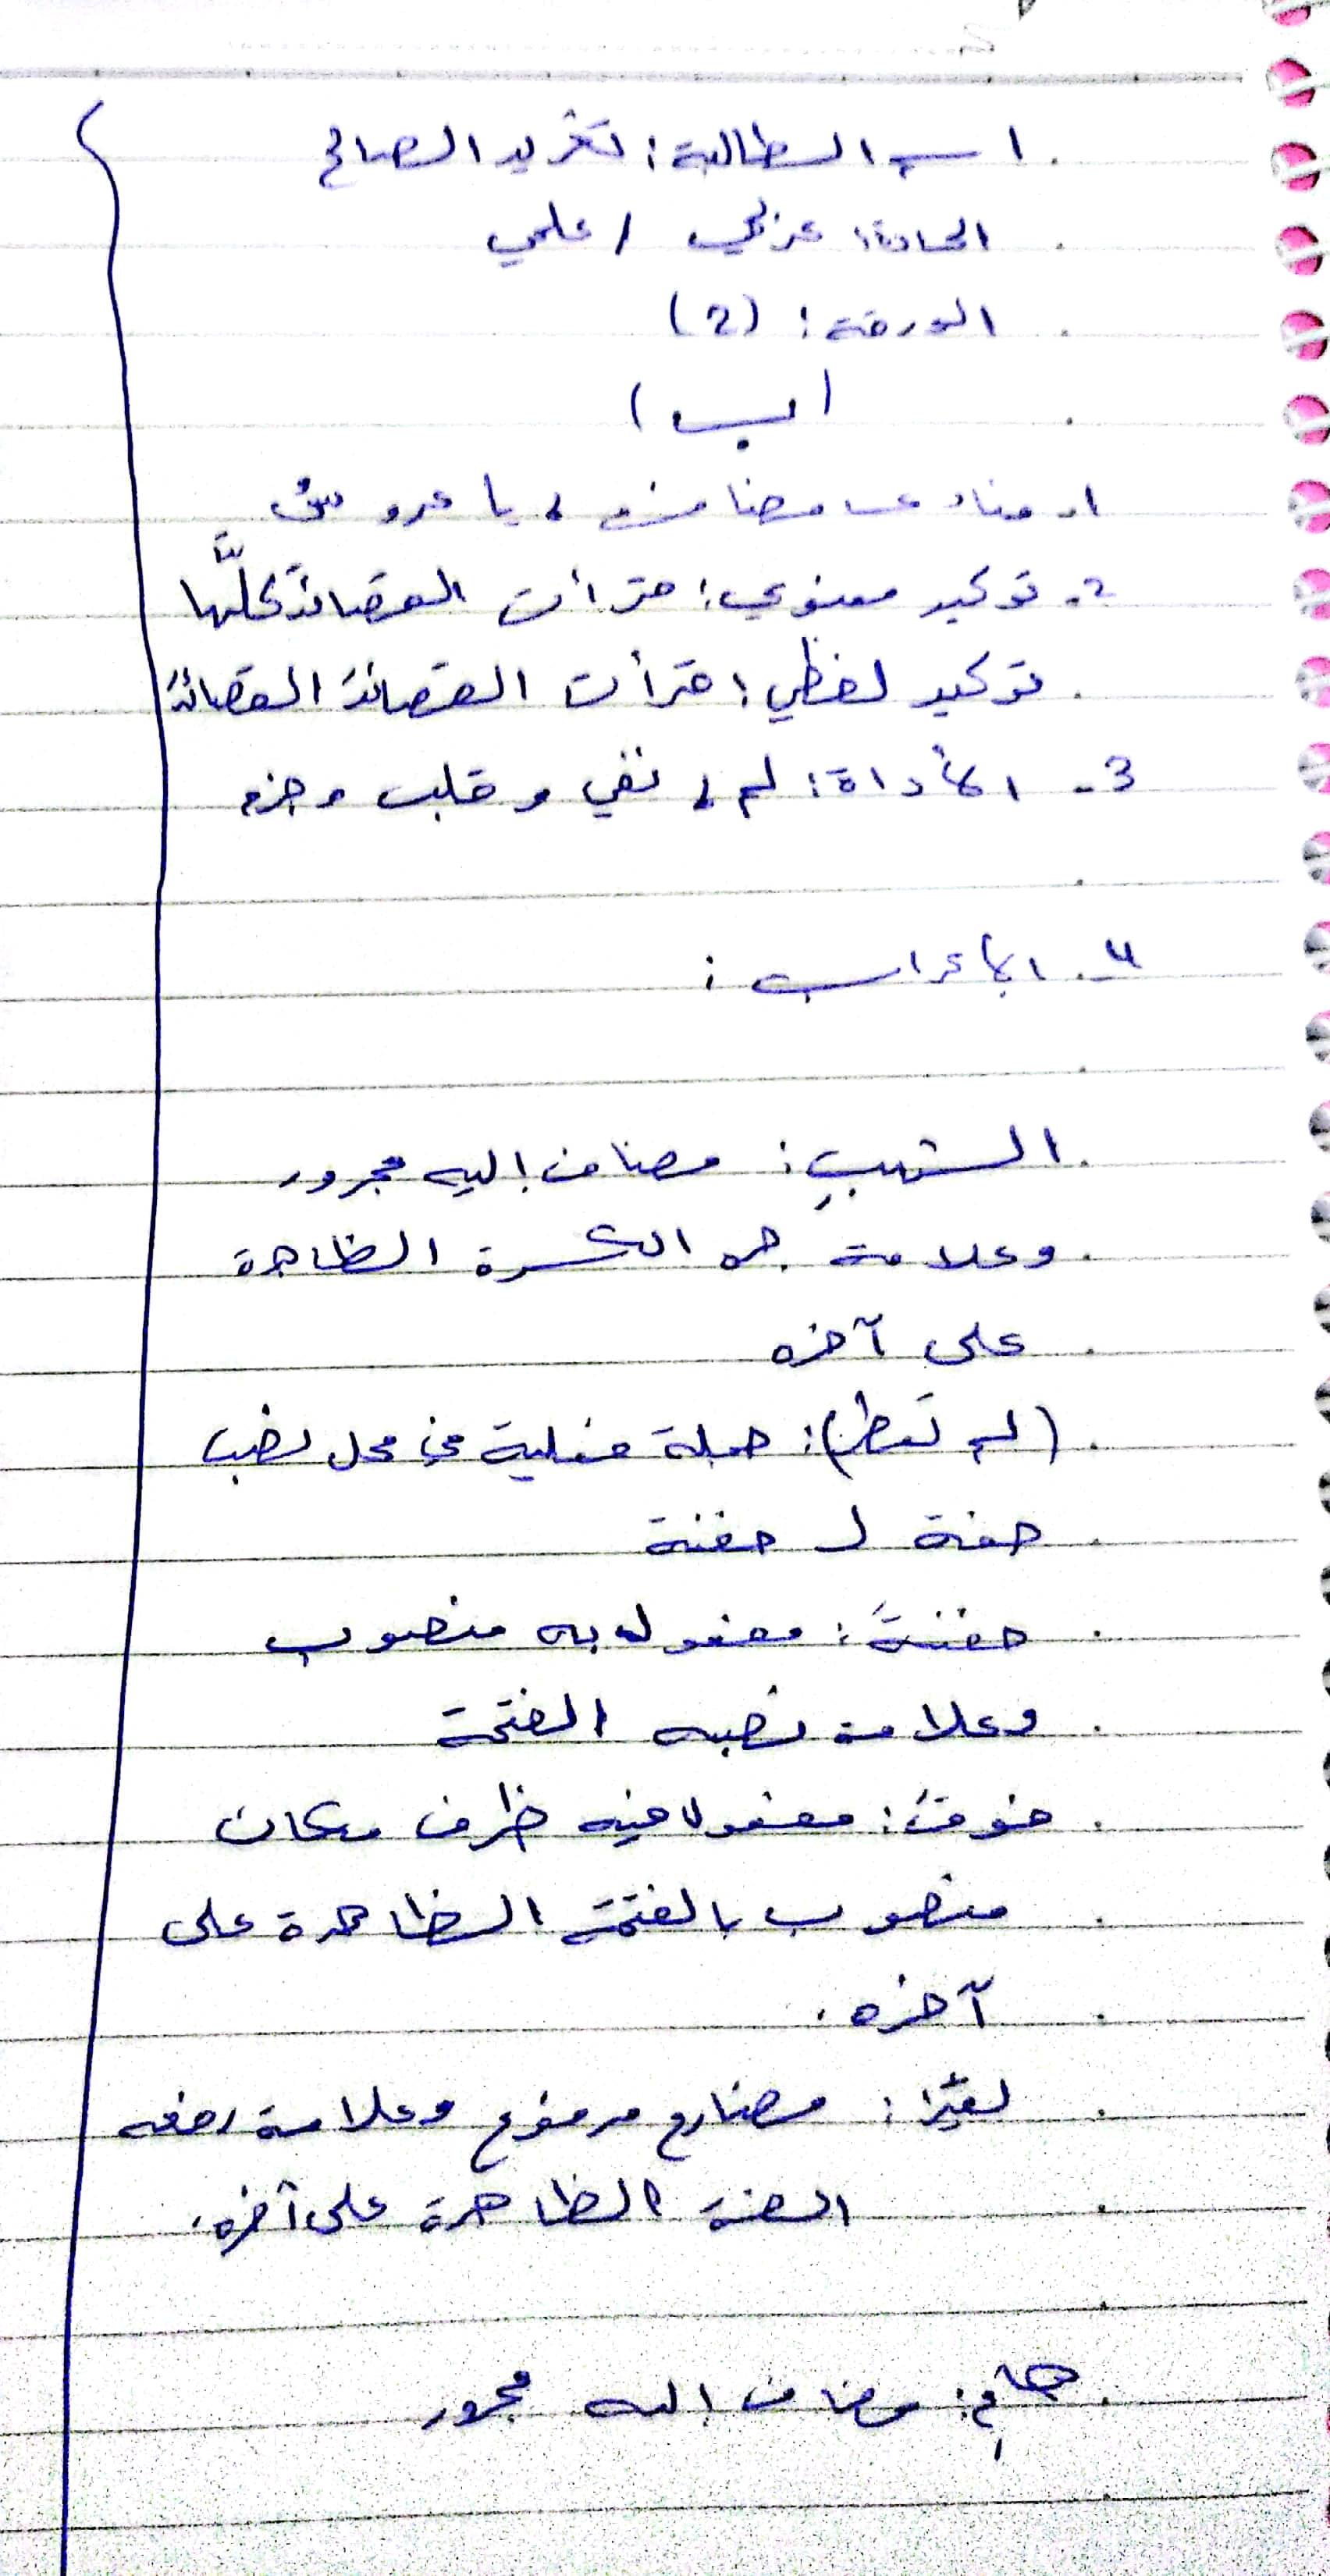 اسم الطالبة: تغريد الصالح
المادة: عربي / علمي
الورقة: (2)
(ب)
1- منادى مضاف، يا عروس
2- توكيد معنوي: قرأت القصائدَ كلَّها
توكيد لفظي: قرأت القصائدَ القصائدَ
3- الأداة: لم، نفي وقلب وجزم
4- الإعراب:
الشهبِ: مضاف إليه مجرور
وعلامة جره الكسرة الظاهرة
على آخره
(لم تطر): جملة فعلية في محل نصب
صفة لـ حفنة
حفنةً: مفعول به منصوب
وعلامة نصبه الفتحة
فوقَ: مفعول فيه ظرف مكان
منصوب بالفتحة الظاهرة على
آخره.
مضارع مرفوع وعلامة رفعه
الضمة الظاهرة على آخره.
مضاف إليه مجرور